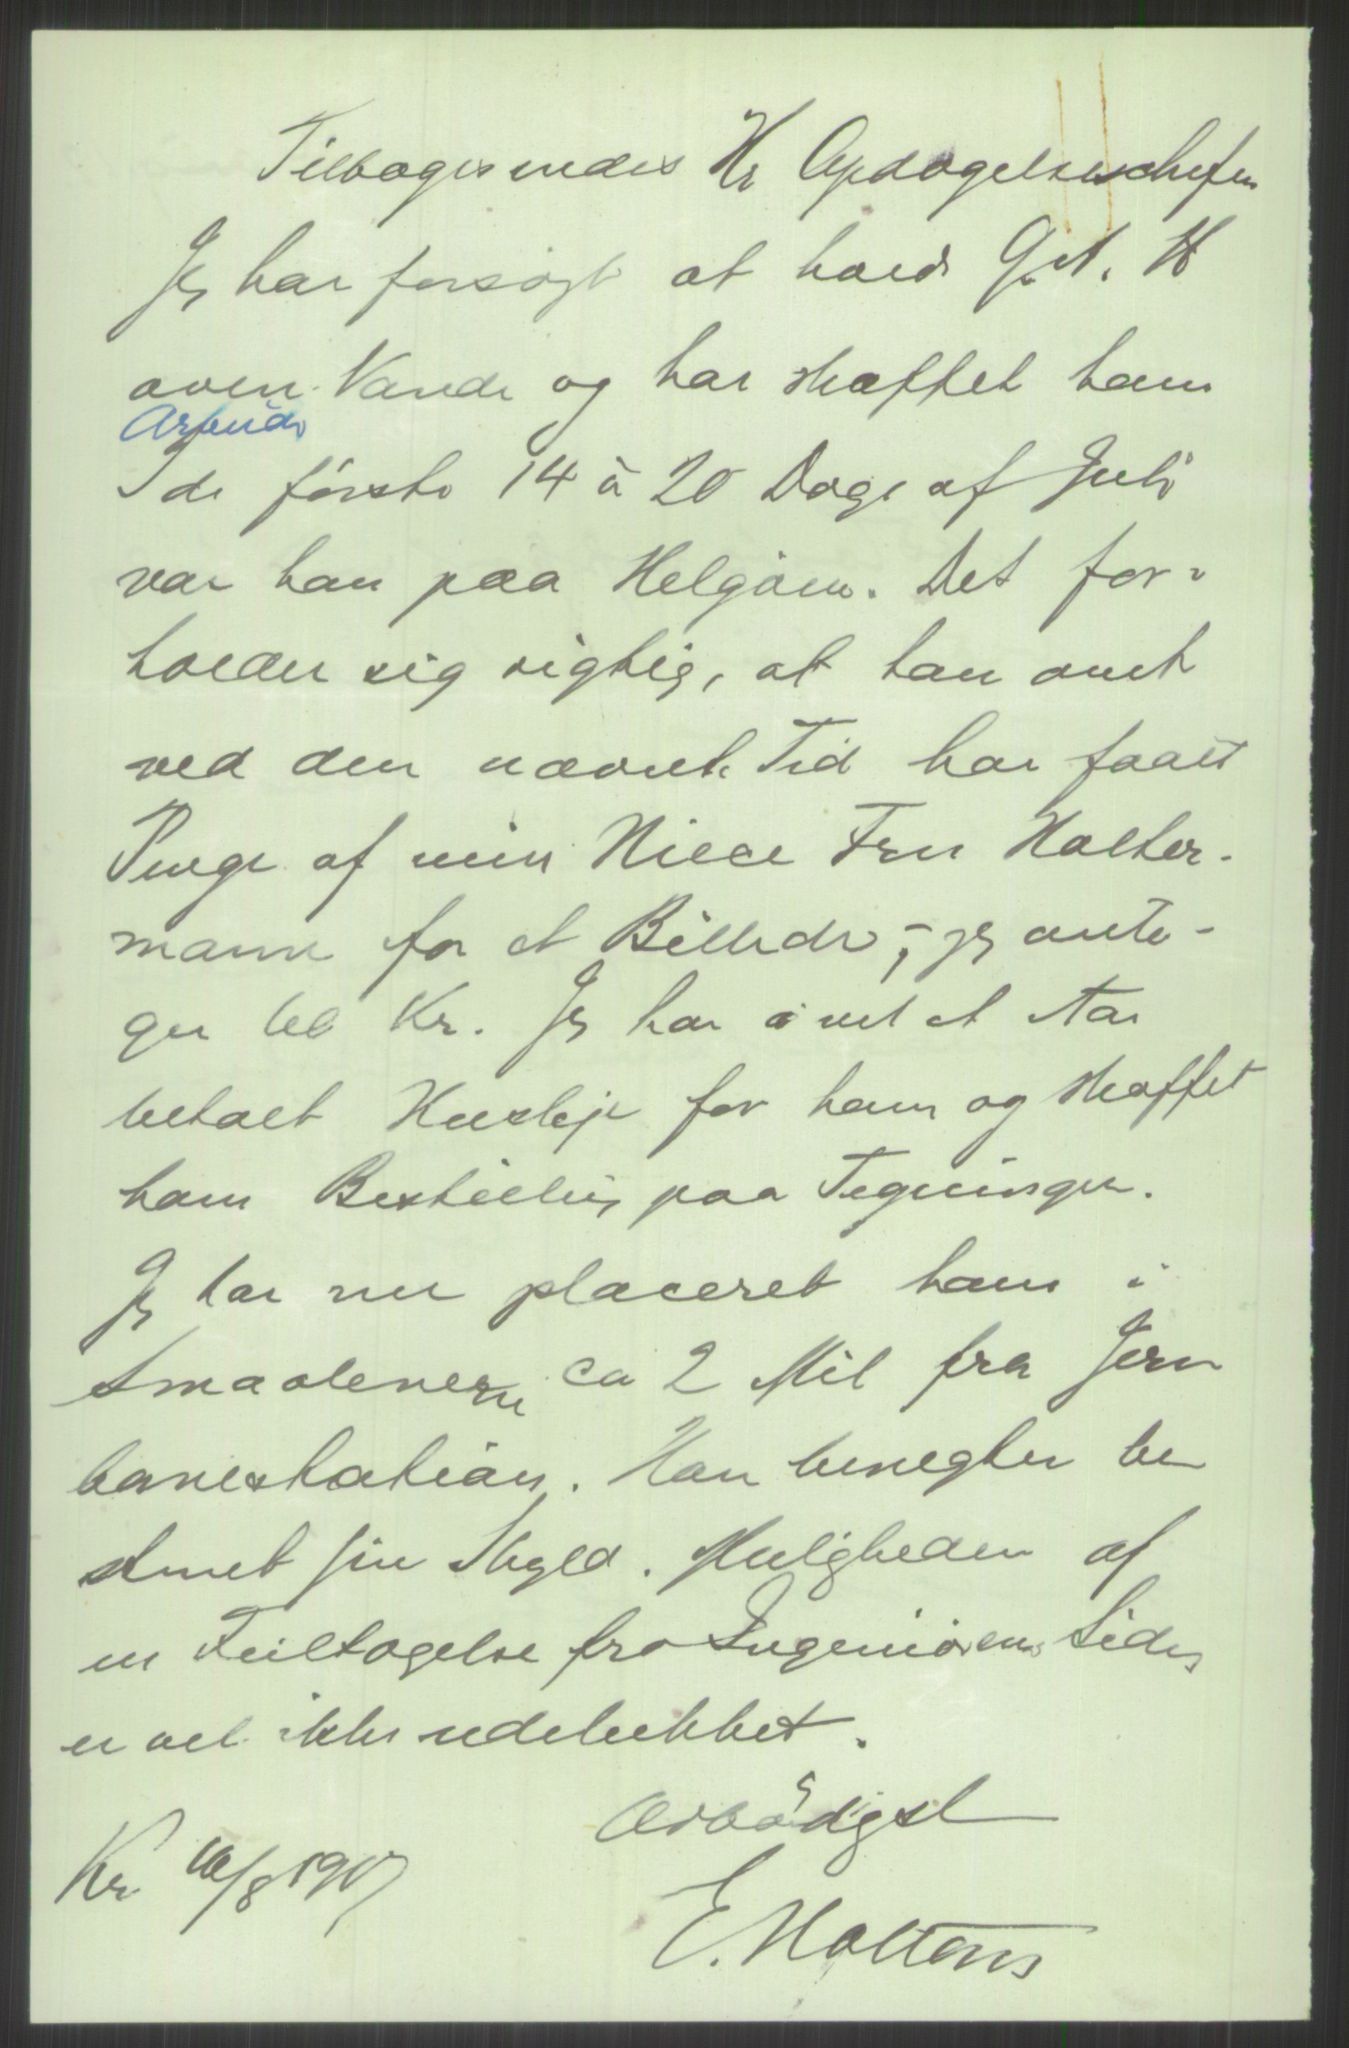 Tilbagesendes Hr Opdagelseschefen
Jeg har forsøgt at holde G. A. H
oven Vande og har skaffet ham
Arbeide
I de første 14 à 20 Dage af Juli
var han paa Helgøen. Det for-
holder sig rigtig, at han omt
ved den nævnte Tid har faaet
Penge af min Niece Fru Halter-
mann for et Billede, - jeg anta-
ger Kr. Jeg har i vel et Aar
betalt Husleje for ham og skaffet
ham Bestilling paa Tegninger.
Jeg har nu placeret ham i
Smaalenene ca 2 Mil fra Jern
banestation. Han benegter be
stemt sin Skyld. Muligheden af
en Feiltagelse fra Ingeniørens Side,
er vel ikke udelukket.
Ærbødigst
Kr. 10/8 1907
E. Holtans